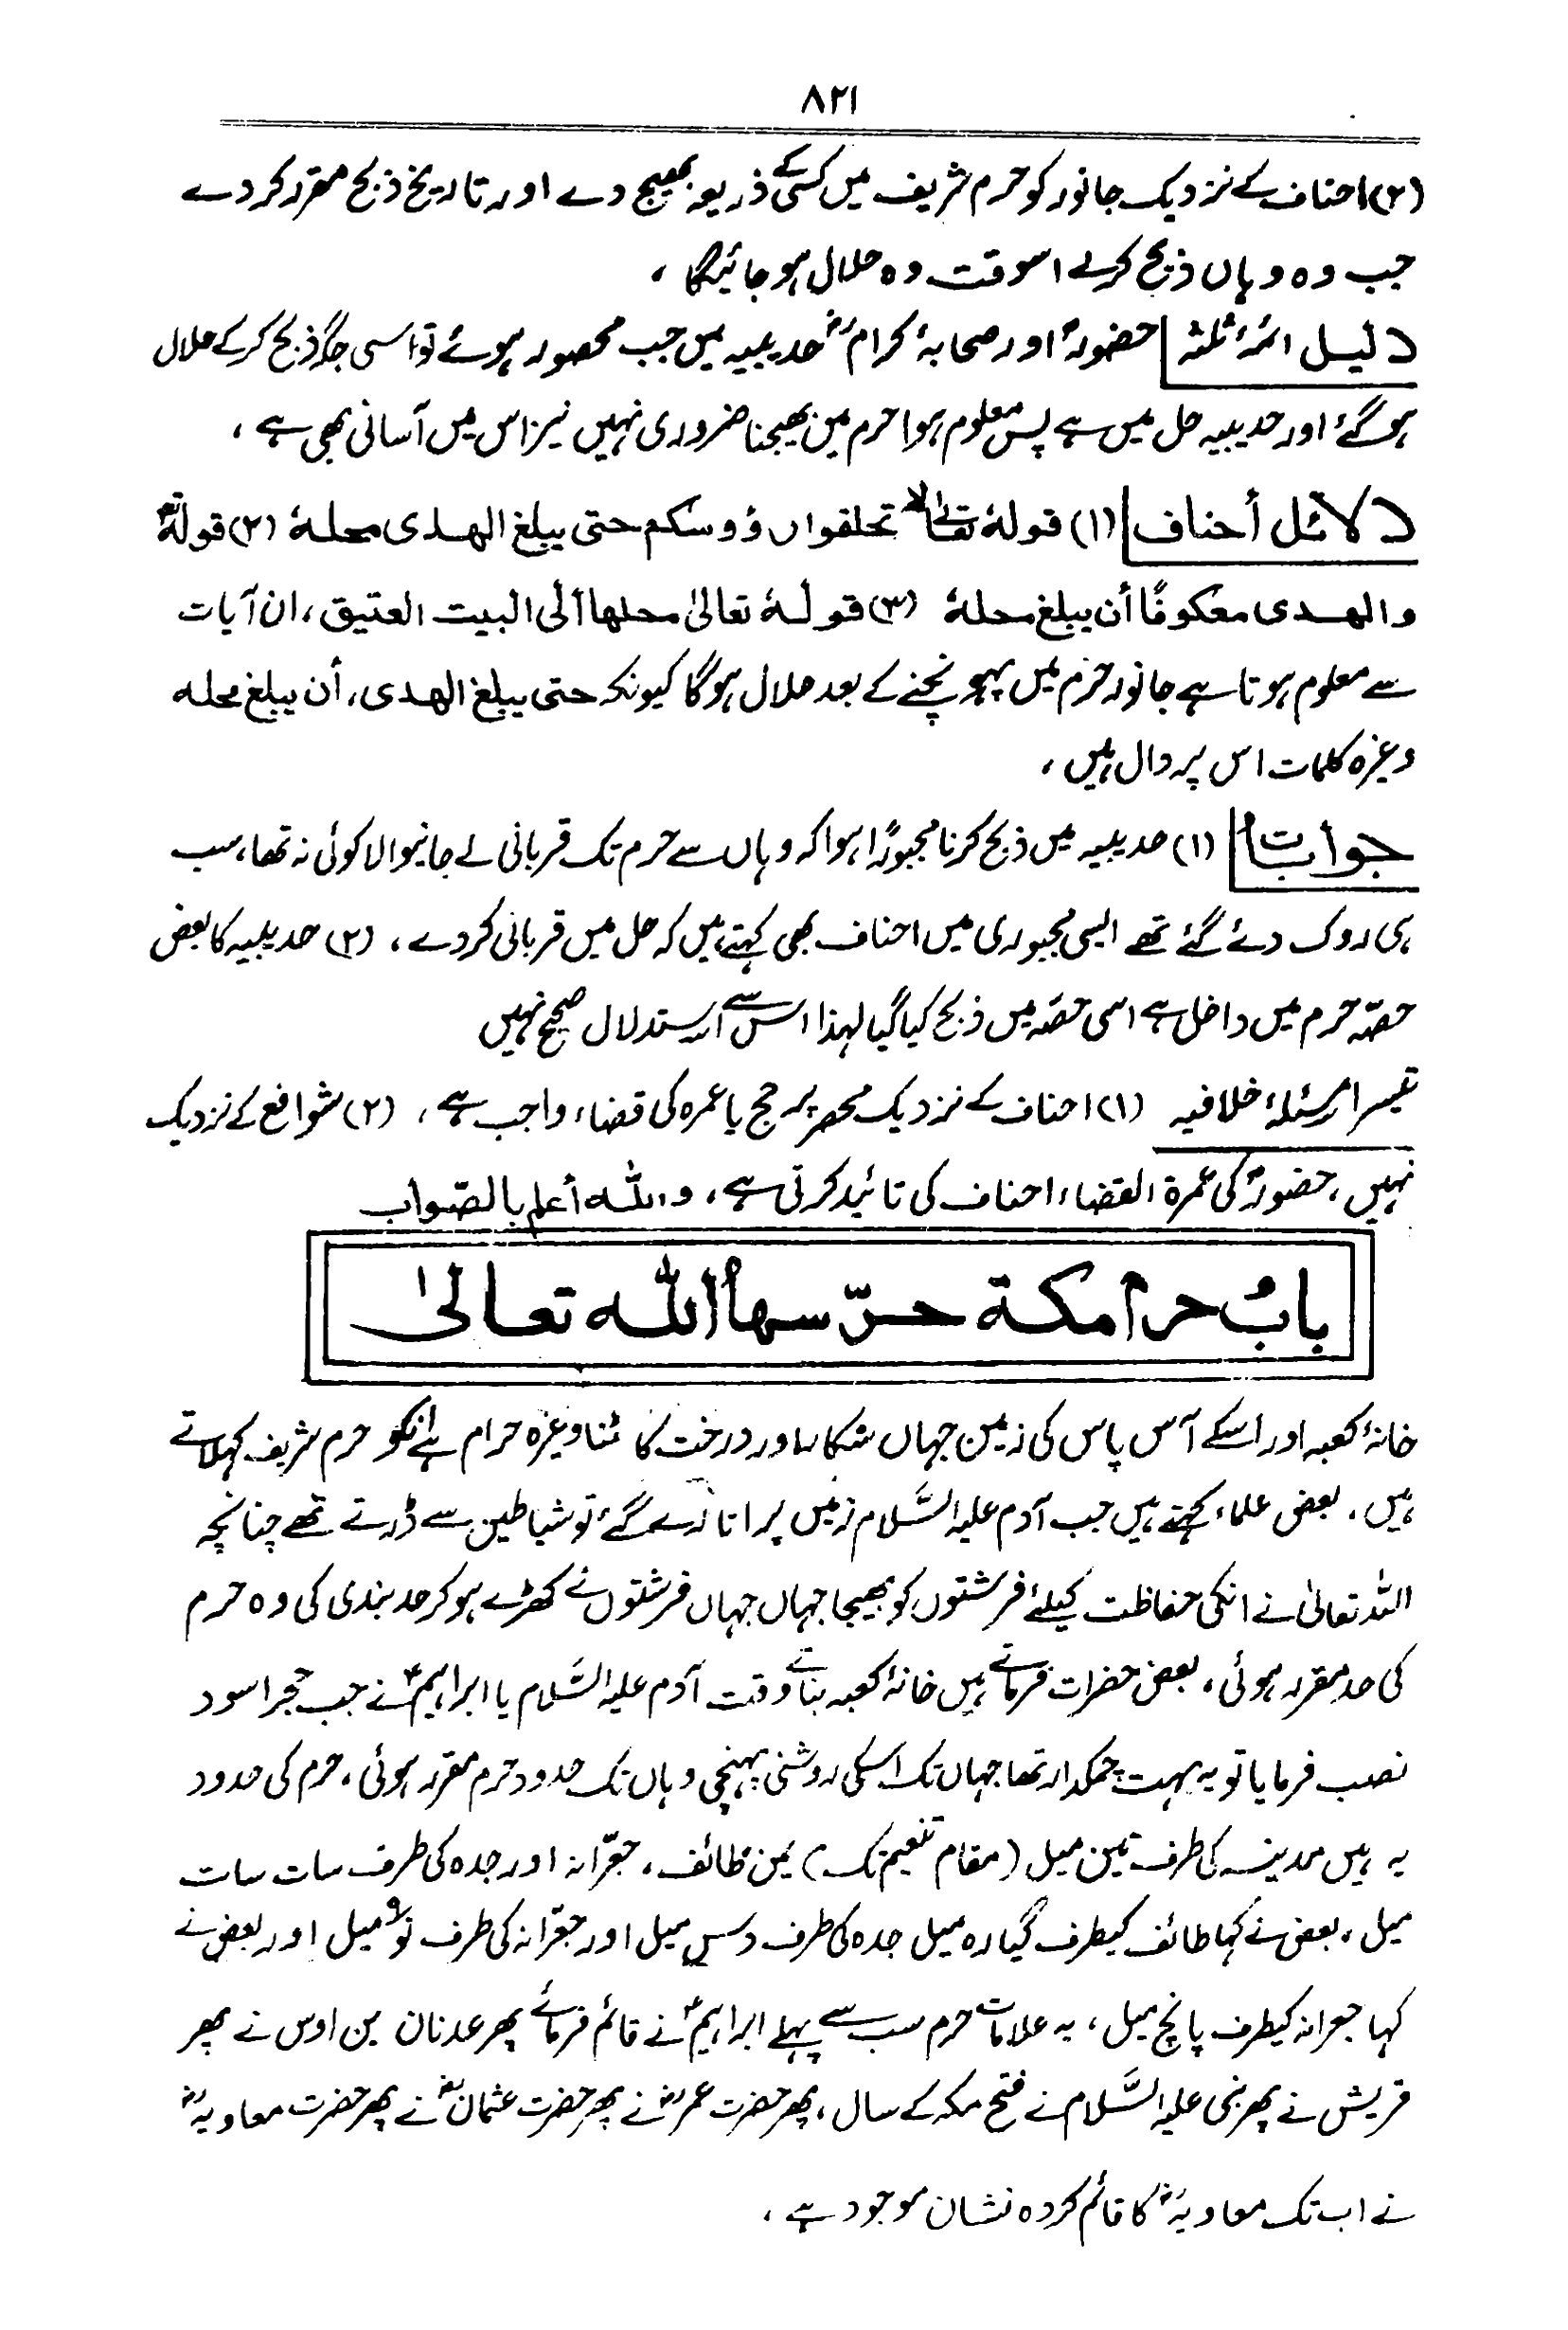 ۸۲۱
(۲) احناف کے نزدیک جانور کو حرم شریف میں کسی کے ذریعہ بھیج دے اور تاریخ ذبح مقرر کر دے
جب وہ وہاں ذبح کرلے اسوقت وہ حلال ہو جائیگا ،
دلیل ائمۂ ثلثہ حضورؐ اور صحابۂ کرامؓ حدیبیہ میں جب محصور ہوئے تو اسی جگہ ذبح کر کے حلال
ہو گئے اور حدیبیہ حل میں ہے پس معلوم ہوا حرم میں بھیجنا ضروری نہیں نیز اس میں آسانی بھی ہے ،
دلائل أحناف (۱) قولہٗ تعالیٰ لا تحلقوا رؤوسکم حتی یبلغ الھدی محلہٗ (۲) قولہٗ
والھدی معکوفًا أن یبلغ محلہٗ (۳) قولہٗ تعالیٰ محلھا ألی البیت العتیق ، ان آیات
سے معلوم ہوتا ہے جانور حرم میں پہونچنے کے بعد حلال ہوگا کیونکہ حتی یبلغ الھدی ، أن یبلغ محلہ
وغیرہ کلمات اس پر دال ہیں ،
جوابات (۱) حدیبیہ میں ذبح کرنا مجبورًا ہوا کہ وہاں سے حرم تک قربانی لے جانیوالا کوئی نہ تھا، سب
ہی روک دئے گئے تھے ایسی مجبوری میں احناف بھی کہتے ہیں کہ حل میں قربانی کر دے ، (۲) حدیبیہ کا بعض
حصّہ حرم میں داخل ہے اسی حصّہ میں ذبح کیا گیا لہذا اس سے استدلال صحیح نہیں
تیسرا مسئلۂ خلافیہ (۱) احناف کے نزدیک محصر پر حج یا عمرہ کی قضاء واجب ہے ، (۲) شوافع کے نزدیک
نہیں ، حضورؐ کی عمرۃ القضاء احناف کی تائید کرتی ہے ، واللہ أعلم بالصّواب
بابُ حرم مکة حرّسھا اللہ تعالیٰ
خانۂ کعبہ اور اسکے آس پاس کی زمین جہاں شکار اور درخت کا ٹنا وغیرہ حرام ہے انکو حرم شریف کہلاتے
ہیں ، بعض علماء کہتے ہیں جب آدم علیہ السَّلام زمین پر اتارے گئے تو شیاطین سے ڈرتے تھے چنانچہ
اللہ تعالیٰ نے انکی حفاظت کیلئے فرشتوں کو بھیجا جہاں جہاں فرشتوں نے کھڑے ہو کر حد بندی کی وہ حرم
کی حد مقرر ہوئی ، بعض حضرات فرماتے ہیں خانۂ کعبہ بناتے وقت آدم علیہ السَّلام یا ابراہیمؑ نے جب حجر اسود
نصب فرمایا تو یہ بہت چمکدار تھا جہاں تک اسکی روشنی پہنچی وہاں تک حدود حرم مقرر ہوئی ، حرم کی حدود
یہ ہیں مدینہ کی طرف تین میل (مقام تنعیم تک) یمن طائف ، جعرّانہ اور جدہ کی طرف سات سات
میل ، بعض نے کہا طائف کیطرف گیارہ میل جدہ کی طرف دس میل اور جعرّانہ کی طرف نو ۹ میل اور بعض نے
کہا جعرانہ کیطرف پانچ میل ، یہ علامات حرم سب سے پہلے ابراہیمؑ نے قائم فرمائے پھر عدنان بن اوس نے پھر
قریش نے پھر نبی علیہ السَّلام نے فتح مکہ کے سال ، پھر حضرت عمرؓ نے پھر حضرت عثمانؓ نے پھر حضرت معاویہؓ
نے اب تک معاویہؓ کا قائم کردہ نشان موجود ہے ،